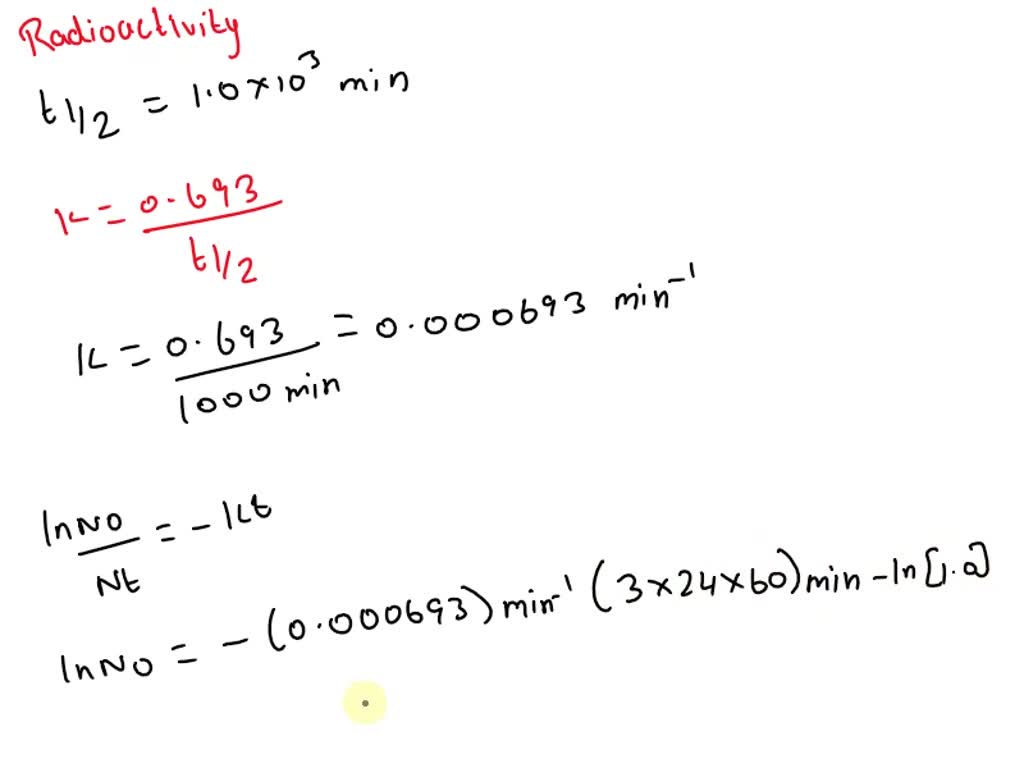 Radioactivity
t1/2 = 1.0×10³ min
K = 0.693 / t1/2
K = 0.693 / 1000 min = 0.000693 min⁻¹
ln No / Nt = -Kt
ln No = -(0.000693) min⁻¹ (3×24×60) min - ln [1.0]